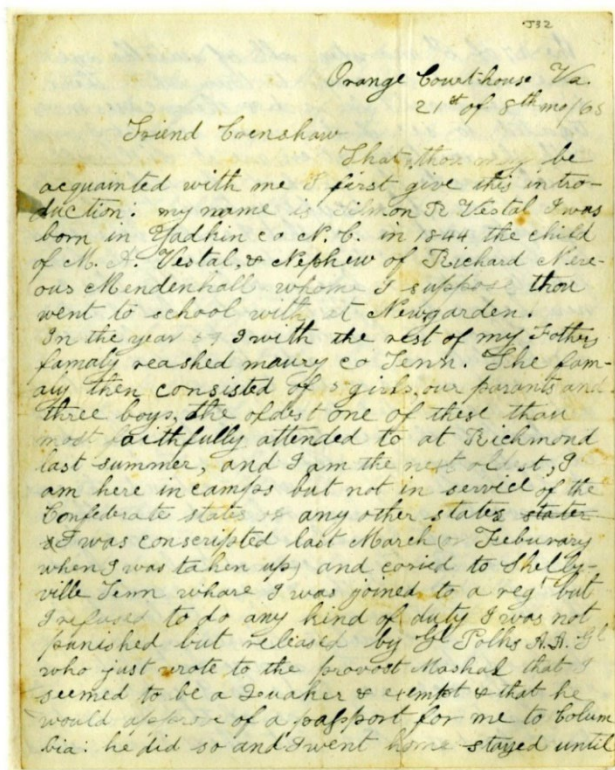 J32
Orange Courthouse Va.
21st of 8th mo/63
Friend Crenshaw
That thou may be
acquainted with me I first give this intro-
duction: my name is Tilmon R Vestal I was
born in Yadkin co N. C. in 1844 the child
of M. A. Vestal, & Nephew of Richard Nere-
ous Mendenhall whome I suppose thou
went to school with at Newgarden.
In the year I with the rest of my Fathers
famaly reached maury co Tenn. The fam-
aly then consisted of 5 girls, our parants and
three boys, the oldest one of these thou
most faithfully attended to at Richmond
last summer, and I am the next oldest, I
am here in camps but not in servic of the
Confederate states or any other states states
& I was conscripted last March (or Feburary
when I was taken up) and caried to Shelby-
ville Tenn whare I was joined to a regt but
I refused to do any kind of duty I was not
punished but released by Gl Polks A.A. Gl
who just wrote to the provost Mashal that I
seemed to be a Quaker & exempt & that he
would approve of a passport for me to Colum
bia: he did so and I went home stayed until